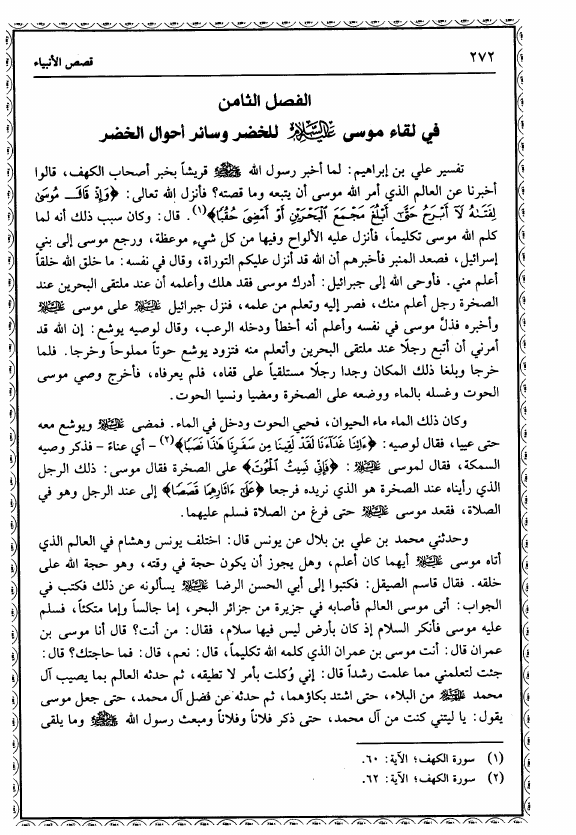 ٢٧٢
قصص الأنبياء
الفصل الثامن
في لقاء موسى عليه السلام للخضر وسائر أحوال الخضر
تفسير علي بن إبراهيم: لما أخبر رسول الله ﷺ قريشاً بخبر أصحاب الكهف، قالوا
أخبرنا عن العالم الذي أمر الله موسى أن يتبعه وما قصته؟ فأنزل الله تعالى: ﴿وَإِذْ قَالَ مُوسَىٰ
لِفَتَىٰهُ لَآ أَبْرَحُ حَتَّىٰٓ أَبْلُغَ مَجْمَعَ ٱلْبَحْرَيْنِ أَوْ أَمْضِىَ حُقُبًا﴾(١). قال: وكان سبب ذلك أنه لما
كلم الله موسى تكليماً، فأنزل عليه الألواح وفيها من كل شيء موعظة، ورجع موسى إلى بني
إسرائيل، فصعد المنبر فأخبرهم أن الله قد أنزل عليكم التوراة، وقال في نفسه: ما خلق الله خلقاً
أعلم مني. فأوحى الله إلى جبرائيل: أدرك موسى فقد هلك وأعلمه أن عند ملتقى البحرين عند
الصخرة رجل أعلم منك، فصر إليه وتعلم من علمه، فنزل جبرائيل عليه السلام على موسى عليه السلام
وأخبره فذلّ موسى في نفسه وأعلم أنه أخطأ ودخله الرعب، وقال لوصيه يوشع: إن الله قد
أمرني أن أتبع رجلًا عند ملتقى البحرين وأتعلم منه فتزود يوشع حوتاً مملوحاً وخرجا. فلما
خرجا وبلغا ذلك المكان وجدا رجلًا مستلقياً على قفاه، فلم يعرفاه، فأخرج وصي موسى
الحوت وغسله بالماء ووضعه على الصخرة ومضيا ونسيا الحوت.
وكان ذلك الماء ماء الحيوان، فحيي الحوت ودخل في الماء. فمضى عليه السلام ويوشع معه
حتى عييا، فقال لوصيه: ﴿ءَاتِنَا غَدَآءَنَا لَقَدْ لَقِينَا مِن سَفَرِنَا هَٰذَا نَصَبًا﴾(٢) – أي عناءً – فذكر وصيه
السمكة، فقال لموسى عليه السلام: ﴿فَإِنِّى نَسِيتُ ٱلْحُوتَ﴾ على الصخرة فقال موسى: ذلك الرجل
الذي رأيناه عند الصخرة هو الذي نريده فرجعا ﴿عَلَىٰٓ ءَاثَارِهِمَا قَصَصًا﴾ إلى عند الرجل وهو في
الصلاة، فقعد موسى عليه السلام حتى فرغ من الصلاة فسلم عليهما.
وحدثني محمد بن علي بن بلال عن يونس قال: اختلف يونس وهشام في العالم الذي
أتاه موسى عليه السلام أيهما كان أعلم، وهل يجوز أن يكون حجة في وقته، وهو حجة الله على
خلقه. فقال قاسم الصيقل: فكتبوا إلى أبي الحسن الرضا عليه السلام يسألونه عن ذلك فكتب في
الجواب: أتى موسى العالم فأصابه في جزيرة من جزائر البحر، إما جالساً وإما متكئاً، فسلم
عليه موسى فأنكر السلام إذ كان بأرض ليس فيها سلام، فقال: من أنت؟ قال أنا موسى بن
عمران قال: أنت موسى بن عمران الذي كلمه الله تكليماً، قال: نعم، قال: فما حاجتك؟ قال:
جئت لتعلمني مما علمت رشداً قال: إني وُكلت بأمر لا تطيقه، ثم حدثه العالم بما يصيب آل
محمد عليه السلام من البلاء، حتى اشتد بكاؤهما، ثم حدثه عن فضل آل محمد، حتى جعل موسى
يقول: يا ليتني كنت من آل محمد، حتى ذكر فلاناً وفلاناً ومبعث رسول الله ﷺ وما يلقى
(١) سورة الكهف؛ الآية: ٦٠.
(٢) سورة الكهف؛ الآية: ٦٢.